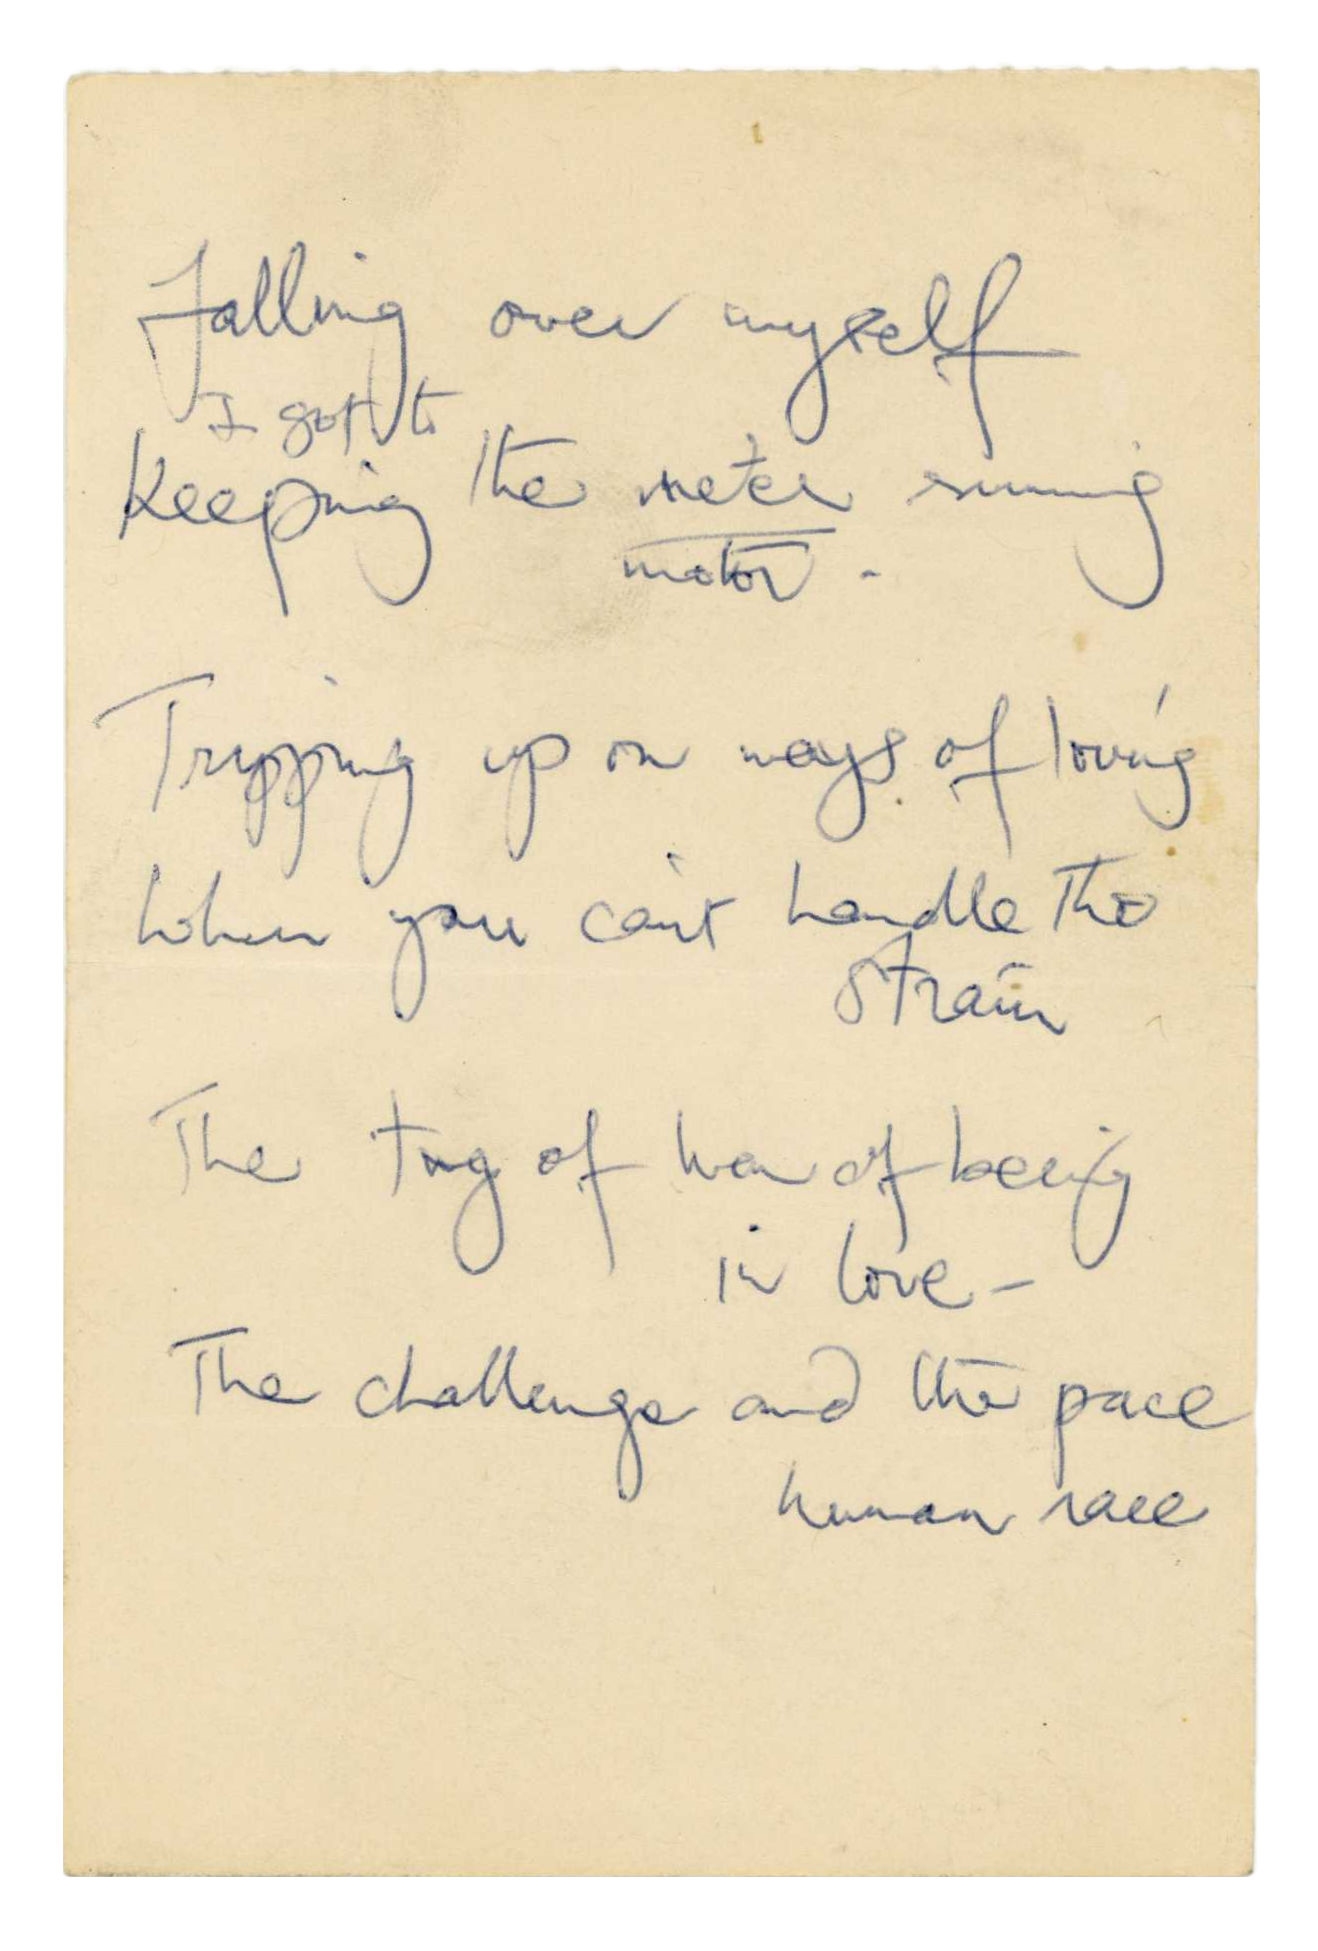 Falling over myself
I got to
Keeping the meter running
motor -
Tripping up on ways of loving
When you can't handle the
strain
The tug of war of being
in love -
The challenge and the pace
human race